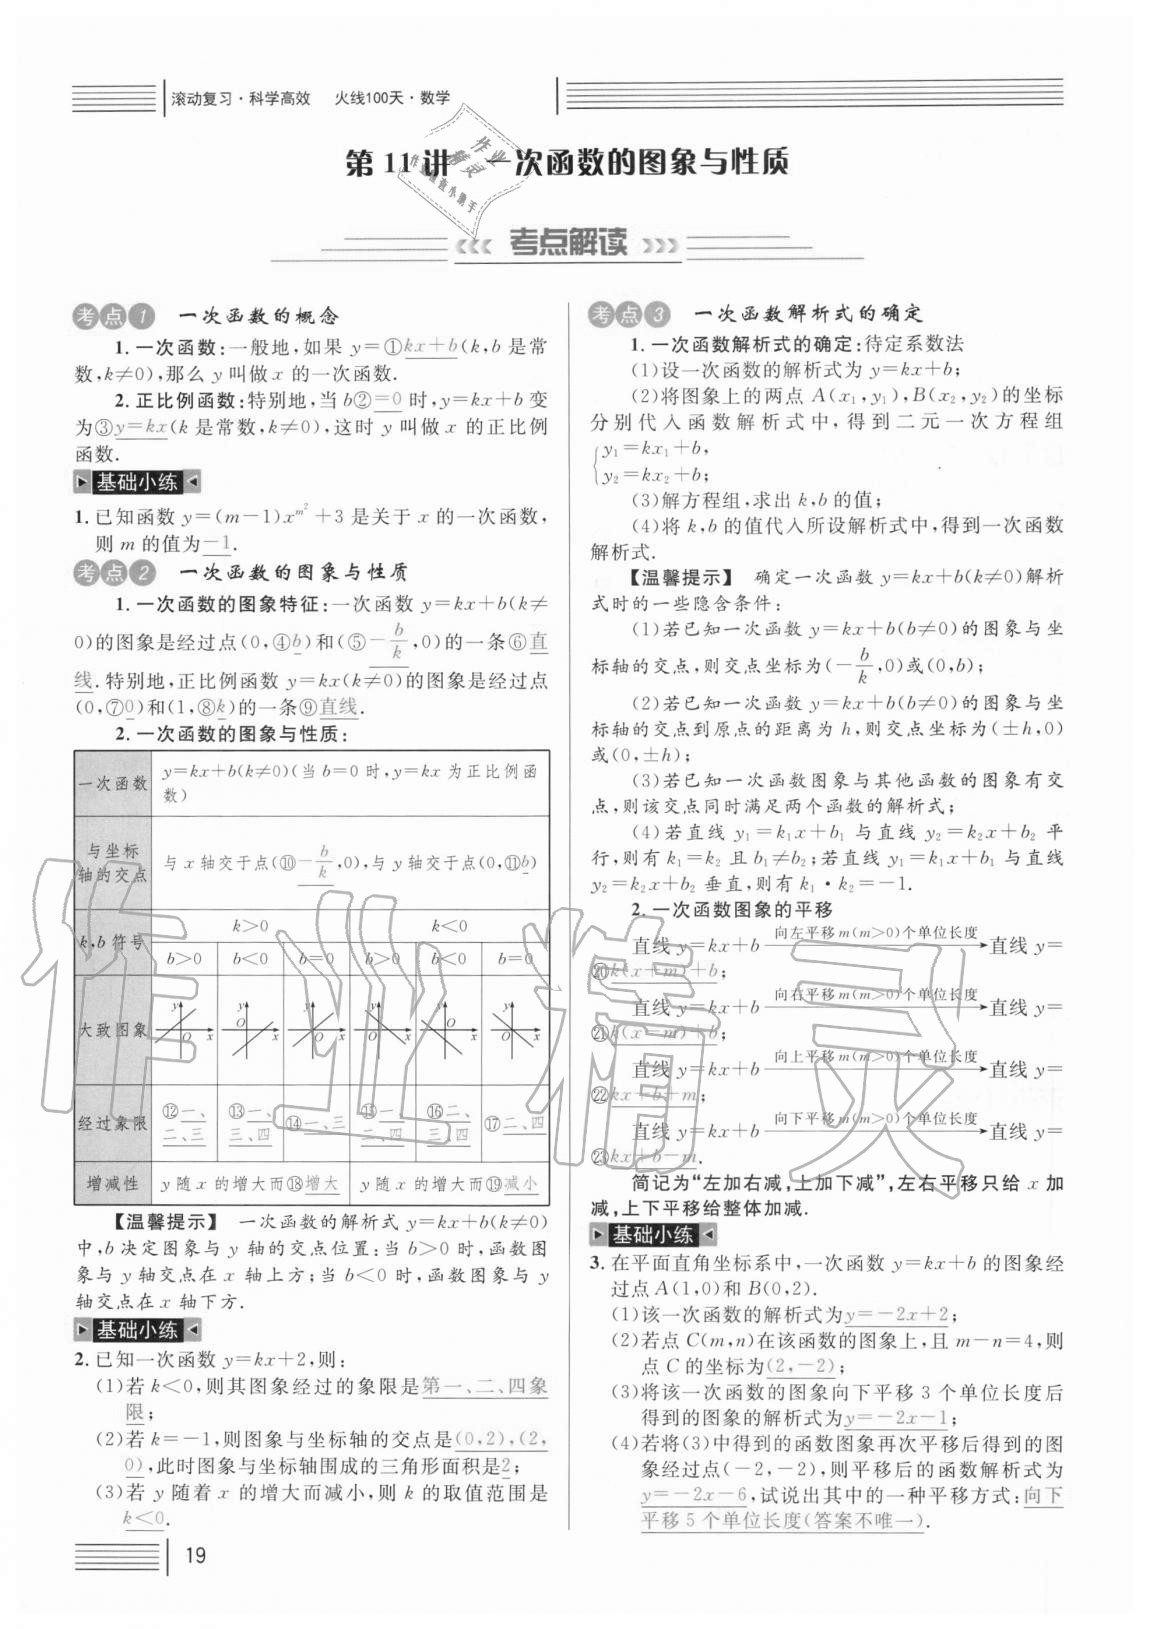 滚动复习·科学高效　火线100天·数学
第11讲　一次函数的图象与性质
考点解读
考点1　一次函数的概念
1.一次函数:一般地,如果 y=①kx+b(k,b 是常
数,k≠0),那么 y 叫做 x 的一次函数.
2.正比例函数:特别地,当 b②=0 时,y=kx+b 变
为③y=kx(k 是常数,k≠0),这时 y 叫做 x 的正比例
函数.
基础小练
1.已知函数 y=(m-1)x^{m²}+3 是关于 x 的一次函数,
则 m 的值为-1.
考点2　一次函数的图象与性质
1.一次函数的图象特征:一次函数 y=kx+b(k≠
0)的图象是经过点(0,④b)和(⑤-b/k,0)的一条⑥直
线.特别地,正比例函数 y=kx(k≠0)的图象是经过点
(0,⑦0)和(1,⑧k)的一条⑨直线.
2.一次函数的图象与性质:
一次函数　y=kx+b(k≠0)(当 b=0 时,y=kx 为正比例函
数)
与坐标
轴的交点　与 x 轴交于点(⑩-b/k,0),与 y 轴交于点(0,⑪b)
k,b 符号　k>0　k<0
b>0　b<0　b=0　b>0　b<0　b=0
大致图象　y O x　y O x　y O x　y O x　y O x　y O x
经过象限　⑫一、二、三　⑬一、三、四　⑭一、三　⑮一、二、四　⑯二、三、四　⑰二、四
增减性　y 随 x 的增大而⑱增大　y 随 x 的增大而⑲减小
【温馨提示】　一次函数的解析式 y=kx+b(k≠0)
中,b 决定图象与 y 轴的交点位置:当 b>0 时,函数图
象与 y 轴交点在 x 轴上方;当 b<0 时,函数图象与 y
轴交点在 x 轴下方.
基础小练
2.已知一次函数 y=kx+2,则:
(1)若 k<0,则其图象经过的象限是第一、二、四象
限;
(2)若 k=-1,则图象与坐标轴的交点是(0,2),(2,
0),此时图象与坐标轴围成的三角形面积是2;
(3)若 y 随着 x 的增大而减小,则 k 的取值范围是
k<0.
19
考点3　一次函数解析式的确定
1.一次函数解析式的确定:待定系数法
(1)设一次函数的解析式为 y=kx+b;
(2)将图象上的两点 A(x₁,y₁),B(x₂,y₂)的坐标
分别代入函数解析式中,得到二元一次方程组
{y₁=kx₁+b,
y₂=kx₂+b;
(3)解方程组,求出 k,b 的值;
(4)将 k,b 的值代入所设解析式中,得到一次函数
解析式.
【温馨提示】　确定一次函数 y=kx+b(k≠0)解析
式时的一些隐含条件:
(1)若已知一次函数 y=kx+b(b≠0)的图象与坐
标轴的交点,则交点坐标为(-b/k,0)或(0,b);
(2)若已知一次函数 y=kx+b(k≠0)的图象与坐
标轴的交点到原点的距离为 h,则交点坐标为(±h,0)
或(0,±h);
(3)若已知一次函数图象与其他函数的图象有交
点,则该交点同时满足两个函数的解析式;
(4)若直线 y₁=k₁x+b₁ 与直线 y₂=k₂x+b₂ 平
行,则有 k₁=k₂ 且 b₁≠b₂;若直线 y₁=k₁x+b₁ 与直线
y₂=k₂x+b₂ 垂直,则有 k₁·k₂=-1.
2.一次函数图象的平移
直线 y=kx+b 向左平移 m(m>0)个单位长度 直线 y=
⑳k(x+m)+b;
直线 y=kx+b 向右平移 m(m>0)个单位长度 直线 y=
㉑k(x-m)+b;
直线 y=kx+b 向上平移 m(m>0)个单位长度 直线 y=
㉒kx+b+m;
直线 y=kx+b 向下平移 m(m>0)个单位长度 直线 y=
㉓kx+b-m.
简记为“左加右减,上加下减”,左右平移只给 x 加
减,上下平移给整体加减.
基础小练
3.在平面直角坐标系中,一次函数 y=kx+b 的图象经
过点 A(1,0)和 B(0,2).
(1)该一次函数的解析式为y=-2x+2;
(2)若点 C(m,n)在该函数的图象上,且 m-n=4,则
点 C 的坐标为(2,-2);
(3)将该一次函数的图象向下平移 3 个单位长度后
得到的图象的解析式为y=-2x-1;
(4)若将(3)中得到的函数图象再次平移后得到的图
象经过点(-2,-2),则平移后的函数解析式为
y=-2x-6,试说出其中的一种平移方式:向下
平移 5 个单位长度(答案不唯一).
作业精灵
作业精灵